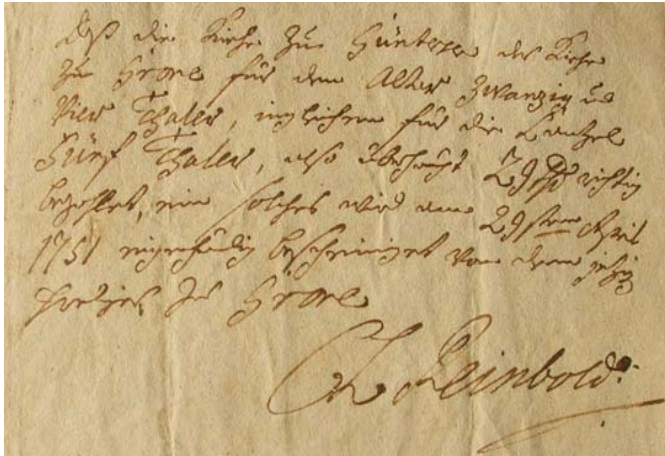 Daß die Kirche zu Güntersen der Kirche
zu Grone für den Altar zwanzig und
Vier Thaler, ingleichen für die Cantzel
Fünf Thaler, also überhaupt 29 rthlr richtig
bezahlet, ein solches wird am 29sten April
1751 eigenhändig bescheiniget von dem jetzigen
Prediger zu Grone
Reinbold.